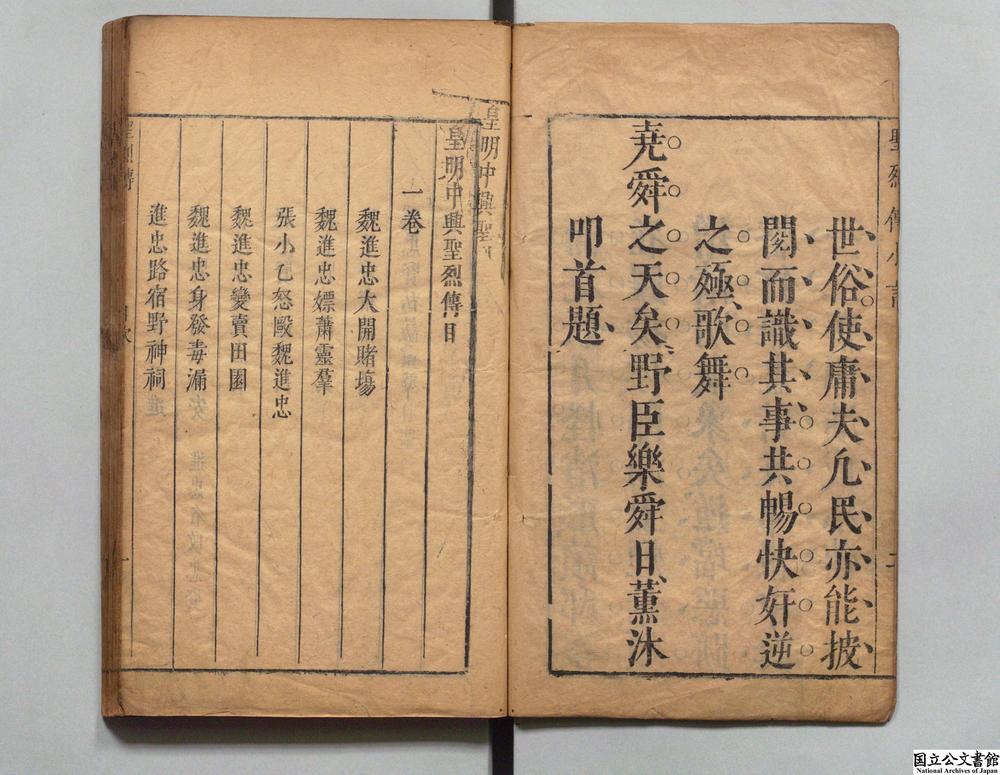 聖烈傳小言
二
世俗使庸夫凢民亦能披
閱而識其事共暢快奸逆
之殛歌舞
堯舜之天矣野臣樂舜日薰沐
叩首題
皇明中興聖
皇明中興聖烈傳目
一卷
魏進忠大開賭塲
魏進忠嫖蕭靈羣
張小乙怒毆魏進忠
魏進忠變賣田園
魏進忠身發毒漏
進忠路宿野神祠
聖烈傳
目次
一
国立公文書館
National Archives of Japan